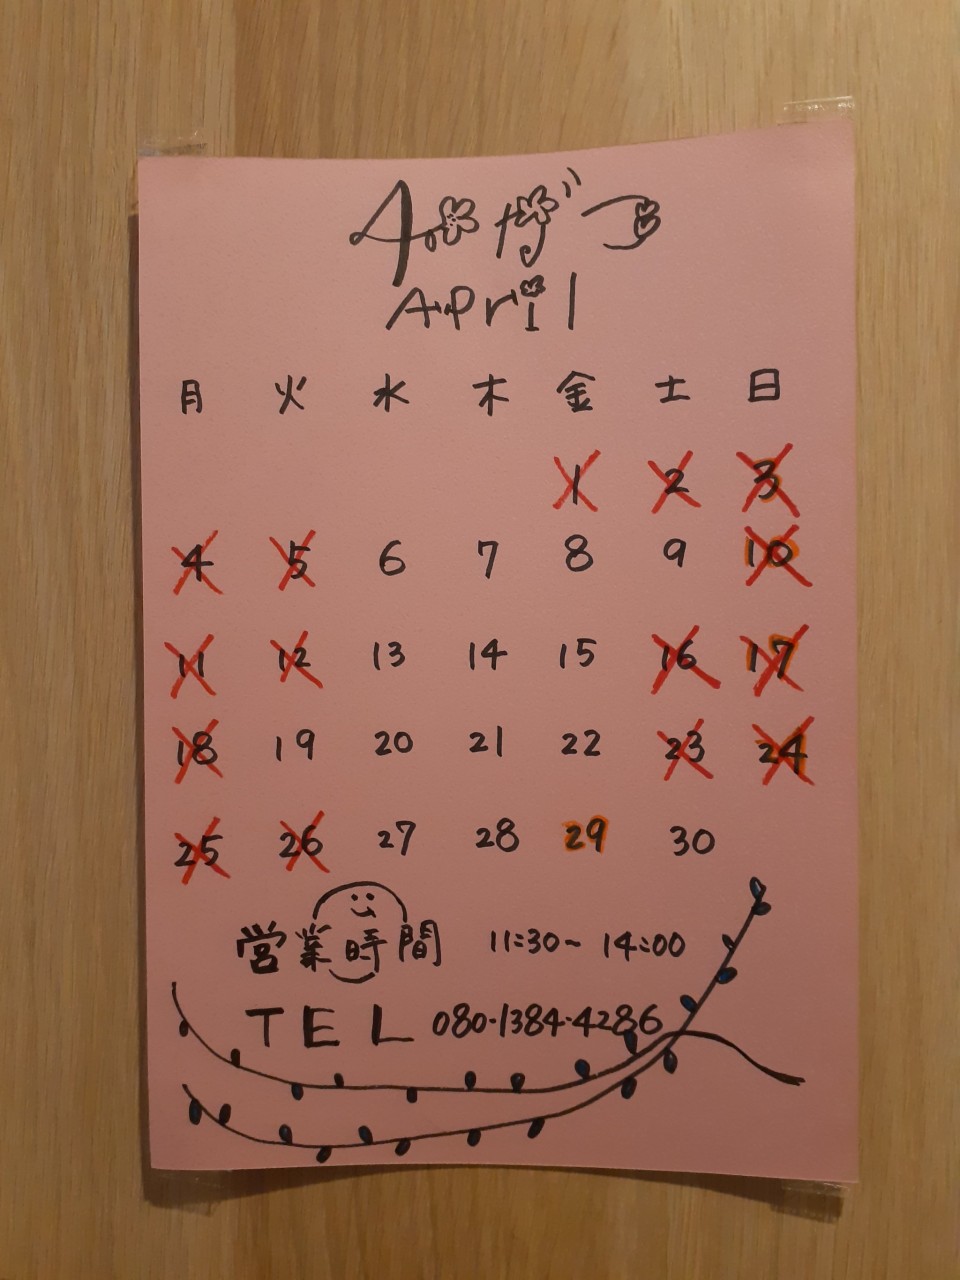 4がつ
April
月 火 水 木 金 土 日
1 2 3
4 5 6 7 8 9 10
11 12 13 14 15 16 17
18 19 20 21 22 23 24
25 26 27 28 29 30
営業時間 11:30~14:00
TEL 080-1384-4286